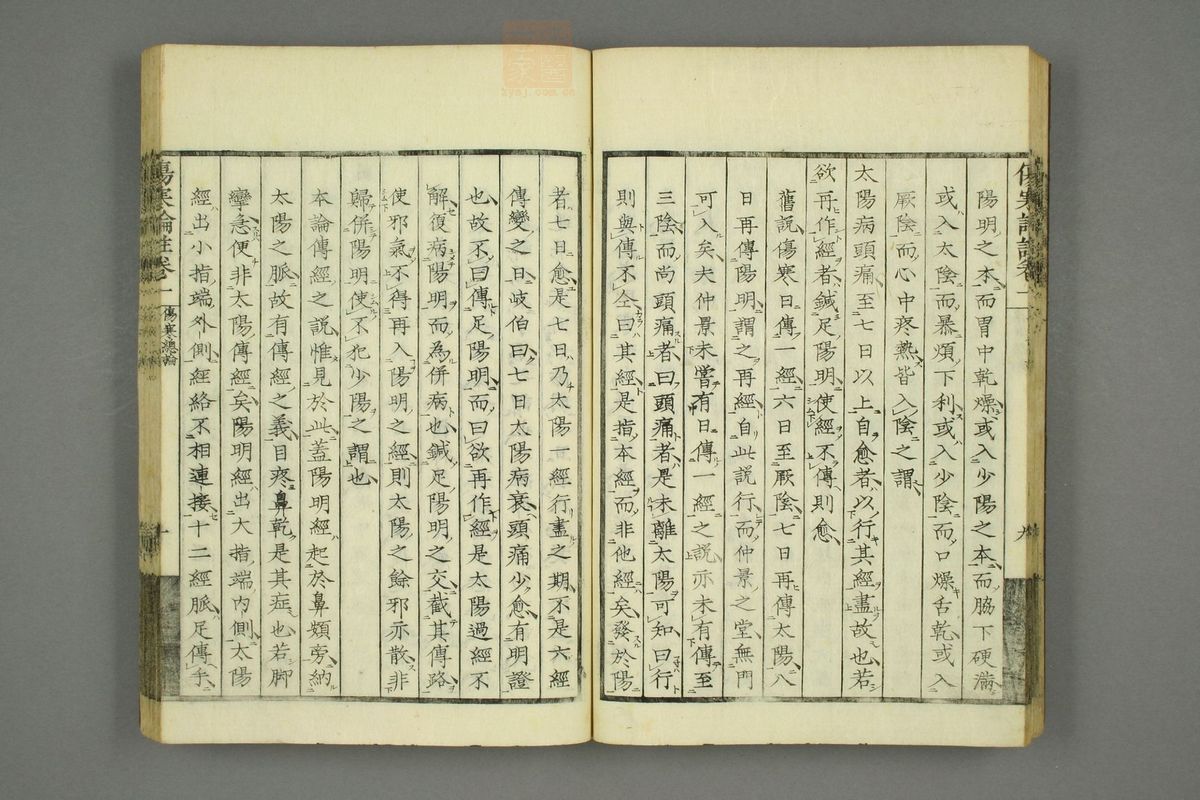 陽明之本而胃中乾燥或入少陽之本而脇下硬滿
或入太陰而暴煩下利或入少陰而口燥舌乾或入
厥陰而心中疼熱皆入陰之謂
太陽病頭痛至七日以上自愈者以行其經盡故也若
欲再作經者鍼足陽明使經不傳則愈
舊說傷寒日傳一經六日至厥陰七日再傳太陽八
日再傳陽明謂之再經自此說行而仲景之堂無門
可入矣夫仲景未嘗有日傳一經之說亦未有傳至
三陰而尚頭痛者曰頭痛者是未離太陽可知曰行
則與傳不仝曰其經是指本經而非他經矣發於陽
者七日愈是七日乃太陽一經行盡之期不是六經
傳變之日岐伯曰七日太陽病衰頭痛少愈有明證
也故不曰傳足陽明而曰欲再作經是太陽過經不
解復病陽明而為併病也鍼足陽明之交截其傳路
使邪氣不得再入陽明之經則太陽之餘邪亦散非
歸併陽明使不犯少陽之謂也
本論傳經之說惟見於此蓋陽明經起於鼻頞旁納
太陽之脈故有傳經之義目疼鼻乾是其症也若脚
攣急便非太陽傳經矣陽明經出大指端內側太陽
經出小指端外側經絡不相連接十二經脈足傳手
傷寒論註卷一
傷寒總論